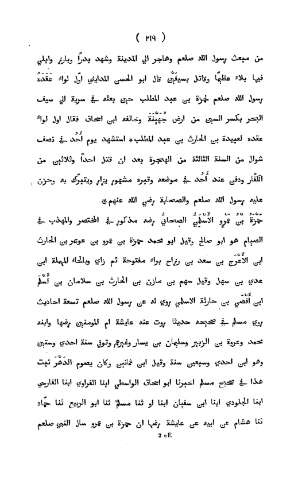 ( ٢١٩ )
من مبعث رسول الله صلعم وهاجر الى المدينة وشهد بدرًا وبارز وابلى
فيها بلاء عظيمًا وقاتل بسيفَيْن قال ابو الحسن المدايني اول لواء عقده
رسول الله صلعم لحمزة بن عبد المطلب حين بعثه في سرية الى سيف
البحر بكسر السين من ارض جُهَيْنة وخالفه ابن اسحاق فقال اول لواء
عقده لعبيدة بن الحارث بن عبد المطلب، استشهد يوم أُحُد في نصف
شوال من السنة الثالثة من الهجرة بعد ان قتل احدًا وثلاثين من
الكفار ودفن عند أُحُد في موضعه وقبره مشهور يزار ويتبرك به وحزن
عليه رسول الله صلعم والصحابة رضى الله عنهم،
حَمْزَة بن عَمْرو الأَسْلَمي الصحابي رضه مذكور في المختصر والمهذب في
الصيام هو ابو صالح وقيل ابو محمد حمزة بن عمرو بن عويمر بن الحارث
ابن الأَعْرَج بن سعد بن رزاح براء مفتوحة ثم زاى وبالحاء المهملة ابن
عدي بن سهل وقيل سهم بن مازن بن الحارث بن سلامان بن أَسْلَم
ابن أَفْصَى بن حارثة الاسلمي روي له عن رسول الله صلعم تسعة احاديث
روى مسلم في صحيحه حديثًا روت عنه عايشة ام المومنين رضها وابنه
محمد وعروة بن الزبير وسليمان بن يسار وغيرهم وتوفي سنة احدى وستين
وهو ابن احدى وسبعين سنة وقيل ابن ثمانين وكان يصوم الدَّهْرَ ثبت
هذا في صحيح مسلم اخبرنا ابو اسحاق الواسطي ابنا الفراوي ابنا الفارسي
ابنا الجلودي ابنا ابن سفيان ابنا ثنا مسلم ثنا ابو الربيع ثنا حَمَّاد
ثنا هشام عن ابيه عن عايشة رضها ان حمزة بن عمرو سال النبي صلعم